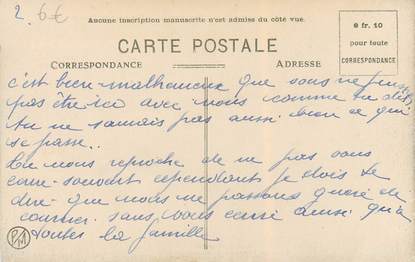 2. 6€
Aucune inscription manuscrite n'est admise du côté vue.
CARTE POSTALE
0 fr. 10
pour toute
CORRESPONDANCE
CORRESPONDANCE
ADRESSE
c'est bien malheureux que vous ne
pas être ici avec nous comme tu dis,
tu ne saurais pas aussi bien ce qui
se passe..
nous reproche de ne pas vous
souvent cependant je dois te
dire que nous ne passons guère de
courrier sans vous ainsi qu'à
toutes la famille